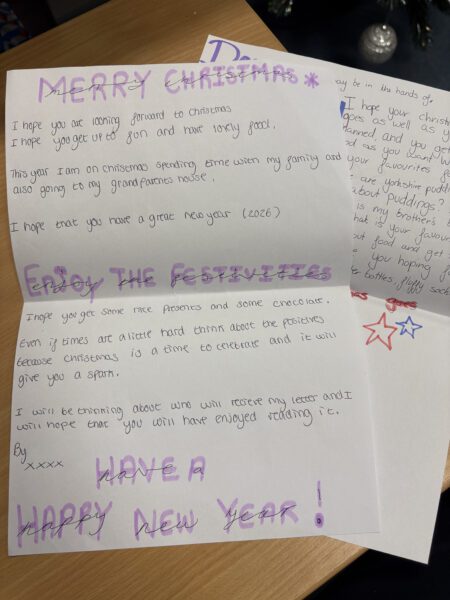 MERRY CHRISTMAS *
I hope you are looking forward to christmas
I hope you get up to fun and have lovely food.
This year I am on christmas spending time with my family and
also going to my grandparents house.
I hope that you have a great new year (2026)
Enjoy THE FESTIVITIES
I hope you get some nice presents and some chocolate.
Even if times are a little hard think about the positives
because christmas is a time to celebrate and it will
give you a spark.
I will be thinking about who will recieve my letter and I
will hope that you will have enjoyed reading it.
By
xxxx
HAVE A
HAPPY NEW YEAR!
De
ay be in the hands of.
I hope your christ
goes as well as y
lanned, and you get
od as you want w
your favourites f
e are yorkshire puddi
about puddings?
is my brother's b
hat is your favour
out food and get
e you hoping f
e bottles, fluffy sock